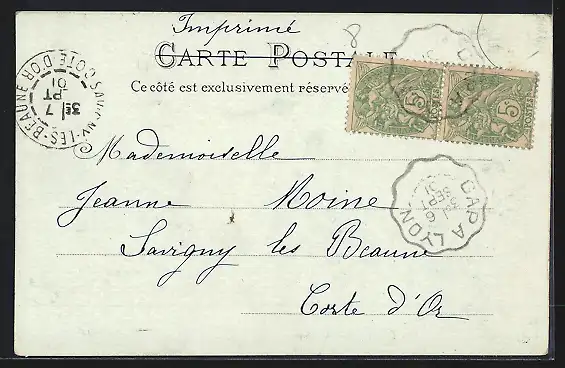 Imprimé
8
CARTE POSTALE
Ce côté est exclusivement réservé
5c 5c
POSTES
SAVIGNY-LES-BEAUNE COTE D'OR
3E 7
PT
01
GAP A LYON
6
SEPT
01
Mademoiselle
Jeanne Moine
Savigny les Beaune
Coste d'Or